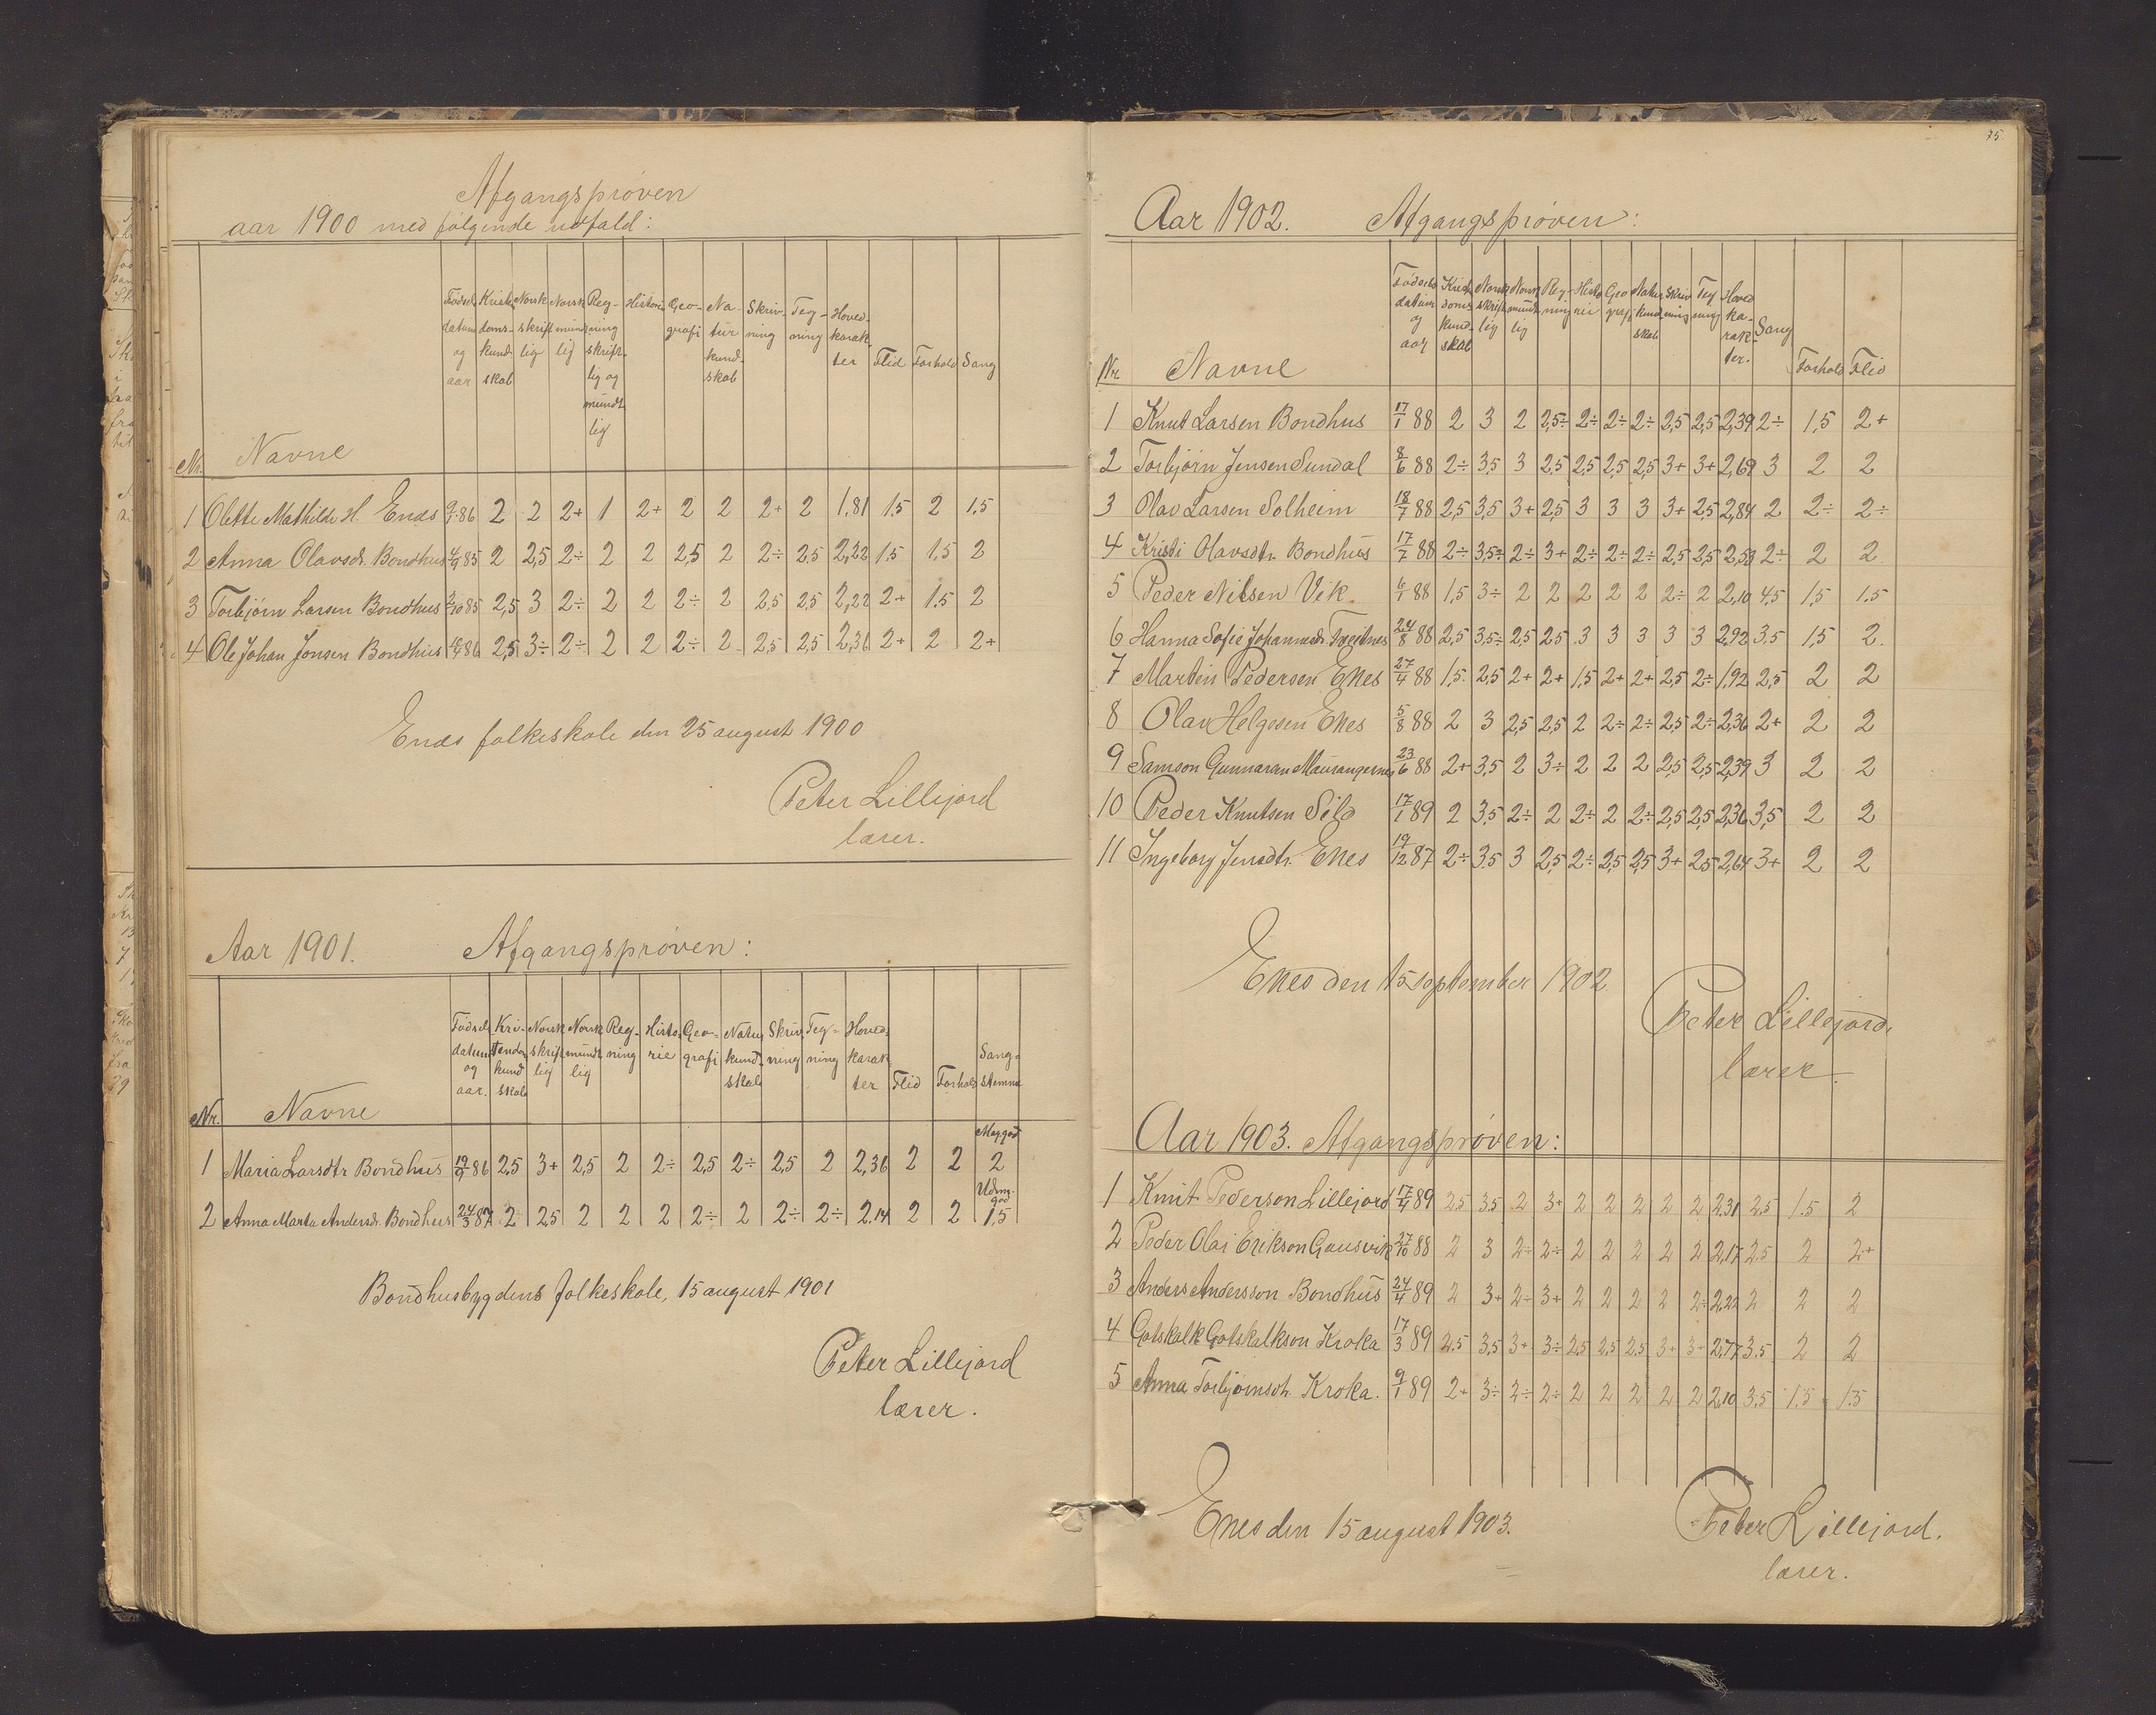 Afgangsprøven
aar 1900 med følgende udfald:
Nr. Navne Fødsels datum og aar Kristendoms-kundskab Norsk skriftlig Norsk mundtlig Reg-ning skrift-lig og mundtlig Historie Geo-grafi Na-tur kund-skab Skriv-ning Teg-ning Hoved-karak-ter Flid Forhold Sang
1 Olette Mathilde H. Enæs 9/1 86 2 2 2+ 1 2+ 2 2 2+ 2 1,81 1,5 2 1,5
2 Anna Olavsdr. Bondhus 4/9 85 2 2,5 2÷ 2 2 2,5 2 2÷ 2,5 2,22 1,5 1,5 2
3 Torbjørn Larsen Bondhus 2/10 85 2,5 3 2÷ 2 2 2÷ 2 2,5 2,5 2,22 2+ 1,5 2
4 Ole Johan Jonsen Bondhus 86 2,5 3÷ 2÷ 2 2 2÷ 2 2,5 2,5 2,36 2+ 2 2+
Enæs folkeskole den 25 august 1900
Peter Lillejord
lærer.
Aar 1901. Afgangsprøven:
Nr. Navne Fødsels datum og aar. Kri-stendoms kund skab Norsk skrift lig Norsk mundt lig Reg-ning Histo-rie Geo-grafi Natur kund-skab Skriv-ning Teg-ning Hoved-karak-ter Flid Forhold Sang-stemme
1 Maria Larsdtr Bondhus 19/9 86 2,5 3+ 2,5 2 2÷ 2,5 2÷ 2,5 2 2,36 2 2 Meg god 2
2 Anna Marta Andersdr. Bondhus 24/3 87 2 2,5 2 2 2 2÷ 2 2÷ 2÷ 2,14 2 2 Udm. god 1,5
Bondhusbygdens folkeskole, 15 august 1901
Peter Lillejord
lærer.
75.
Aar 1902. Afgangsprøven:
Nr. Navne Fødsels datum og aar Krist-doms kund-skab Norsk skrift lig Norsk mundt lig Reg-ning Histo rie Geo grafi Natur kund skab Skriv ning Teg ning Hoved ka-rak-ter. Sang Forhold Flid
1 Knut Larsen Bondhus 17/1 88 2 3 2 2,5÷ 2÷ 2÷ 2÷ 2,5 2,5 2,39 2÷ 1,5 2+
2 Torbjørn Jensen Sundal 8/6 88 2÷ 3,5 3 2,5 2,5 2,5 2,5 3+ 3+ 2,69 3 2 2
3 Olav Larsen Solheim 18/7 88 2,5 3,5 3+ 2,5 3 3 3 3+ 2,5 2,84 2 2÷ 2÷
4 Kristi Olavsdtr. Bondhus 17/7 88 2÷ 3,5÷ 2÷ 3+ 2÷ 2÷ 2÷ 2,5 2,5 2,53 2÷ 2 2
5 Peder Nilsen Vik. 6/1 88 1,5 3÷ 2 2 2 2 2 2÷ 2 2,10 4,5 1,5 1,5
6 Hanna Sofie Johannesdr. Tveitnes 24/8 88 2,5 3,5÷ 2,5 2,5 3 3 3 3 3 2,92 3,5 1,5 2.
7 Martin Pedersen Enes 27/4 88 1,5 2,5 2+ 2+ 1,5 2+ 2+ 2,5 2÷ 1,92 2,5 2 2
8 Olav Helgesen Enes 5/8 88 2 3 2,5 2,5 2 2÷ 2÷ 2,5 2÷ 2,36 2+ 2 2
9 Samson Gunnarsen Maurangernes 23/6 88 2+ 3,5 2 3÷ 2 2 2 2,5 2,5 2,39 3 2 2
10 Peder Knutsen 17/1 89 2 3,5 2÷ 2 2÷ 2 2÷ 2,5 2,5 2,36 3,5 2 2
11 Ingeborg Jensdtr. Enes 19/12 87 2÷ 3,5 3 2,5 2÷ 2,5 2,5 3+ 2,5 2,64 3+ 2 2
Enes den 15 september 1902.
Peter Lillejord.
lærer.
Aar 1903. Afgangsprøven:
1 Knut Pederson Lillejord 17/4 89 2,5 3,5 2 3+ 2 2 2 2 2 2,31 2,5 1,5 2
2 Peder Olai Erikson Gausvik 27/10 88 2 3 2÷ 2÷ 2 2 2 2 2 2,17 2,5 2 2+
3 Anders Andersson Bondhus 24/4 89 2 3+ 2÷ 3+ 2 2 2 2 2÷ 2,22 2 2 2
4 Gotskalk Gotskalkson Kroka 17/3 89 2,5 3,5 3+ 3÷ 2,5 2,5 2,5 3+ 3+ 2,77 3,5 2 2
5 Anna Torbjørnsdr. Kroka. 9/1 89 2+ 3÷ 2÷ 2÷ 2 2 2 2 2 2,10 3,5 1,5 1,5
Enes den 15 august 1903.
Peter Lillejord.
lærer.